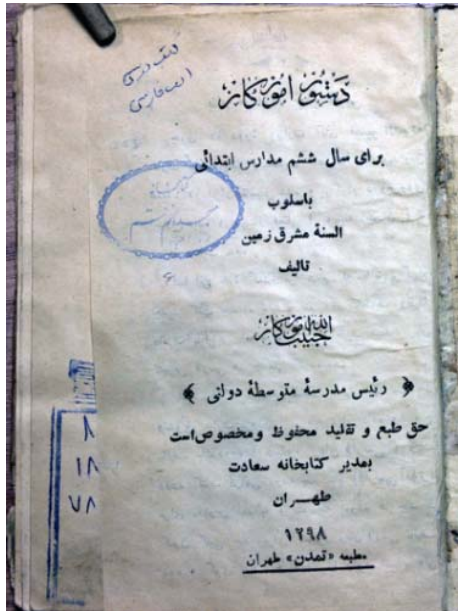 کتب درسی
ادب فارسی
دستور آموزگار
برای سال ششم مدارس ابتدائی
باسلوب
السنهٔ مشرق زمین
تالیف
حبیب الله آموزگار
رئیس مدرسهٔ متوسطهٔ دولتی
حق طبع و تقلید محفوظ ومخصوص است
بمدیر کتابخانه سعادت
طهران
۱۲۹۸
مطبعه «تمدن» طهران
کتابخانه
۶
۸
۱۸
۷۸